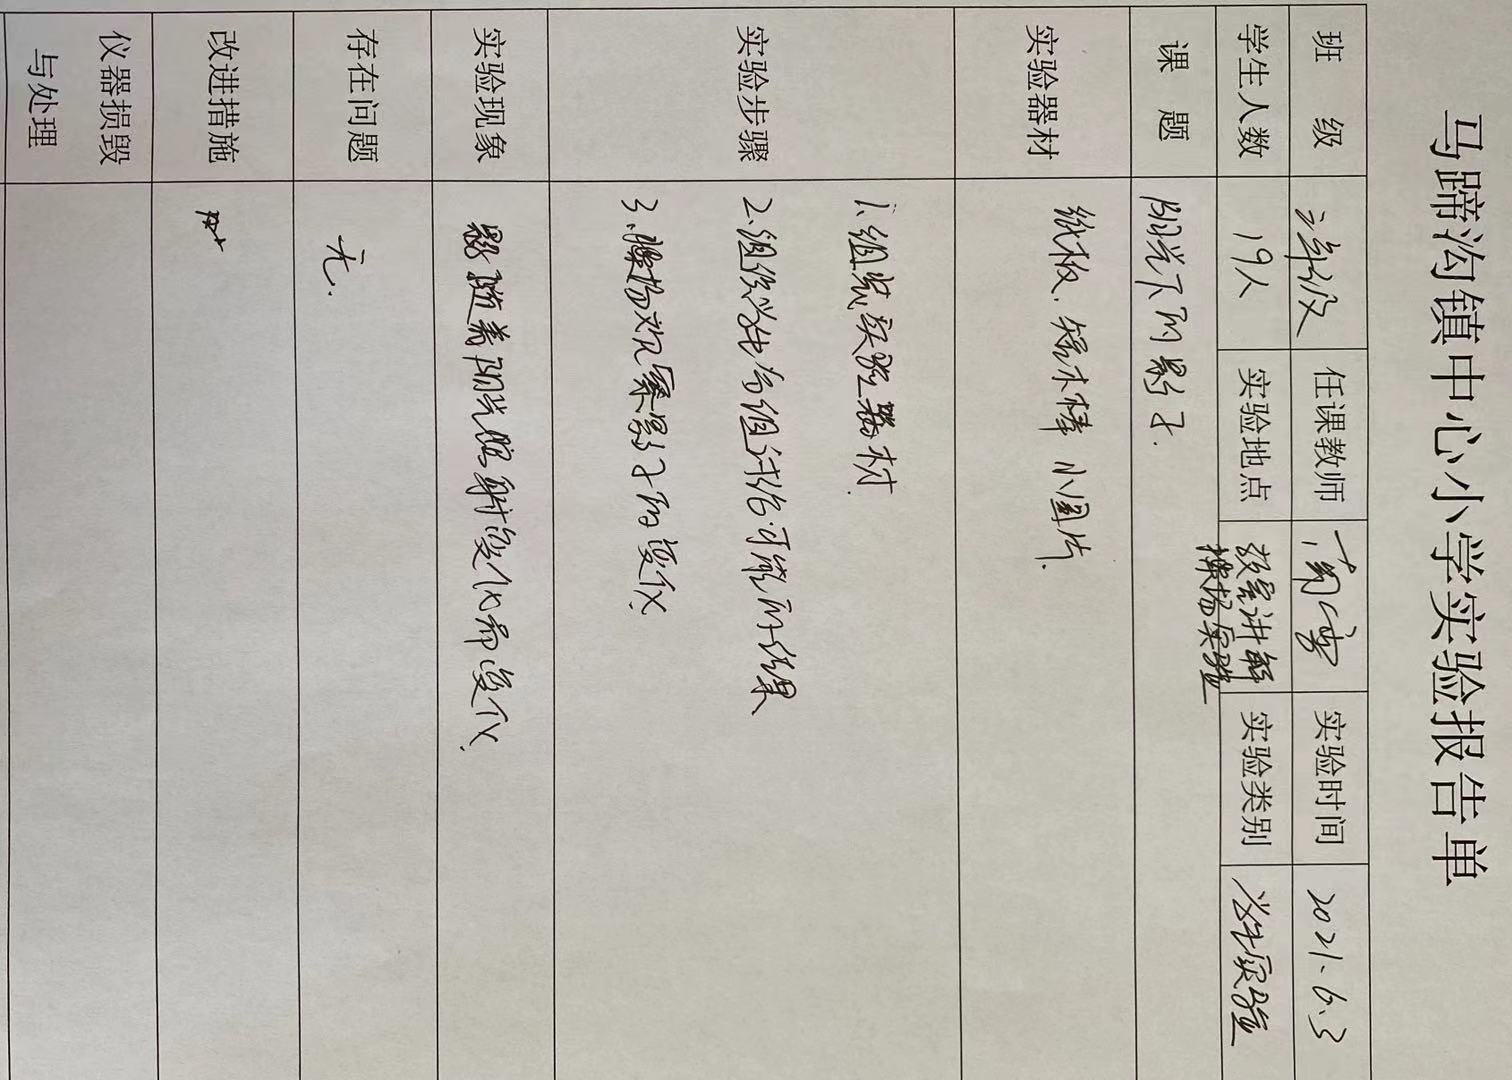 马蹄沟镇中心小学实验报告单
班 级 三年级 任课教师 实验时间 2021.6.3
学生人数 19人 实验地点 教室讲解 操场实验 实验类别 学生实验
课 题 阳光下的影子.
实验器材 纸板、短木棒 小圆片.
实验步骤
1、组装实验器材.
2、组织学生分组讨论.可能的结果
3、操场观察影子的变化.
实验现象 影随着阳光照射变化而变化.
存在问题 无.
改进措施
仪器损毁
与处理